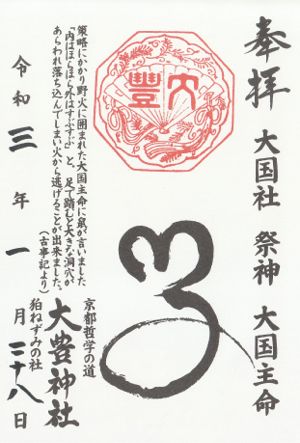 奉拝 大国社 祭神 大国主命
大豊
京都哲学の道
大豊神社
狛ねずみの社
策略にかかり野火に囲まれた大国主命に鼠が言いました
「内はほらほら外はすぶすぶ」と、足で踏むと大きな洞穴が
あらわれ落ち込んでしまい火から逃げることが出来ました。
(古事記より)
令和三年一月二十八日